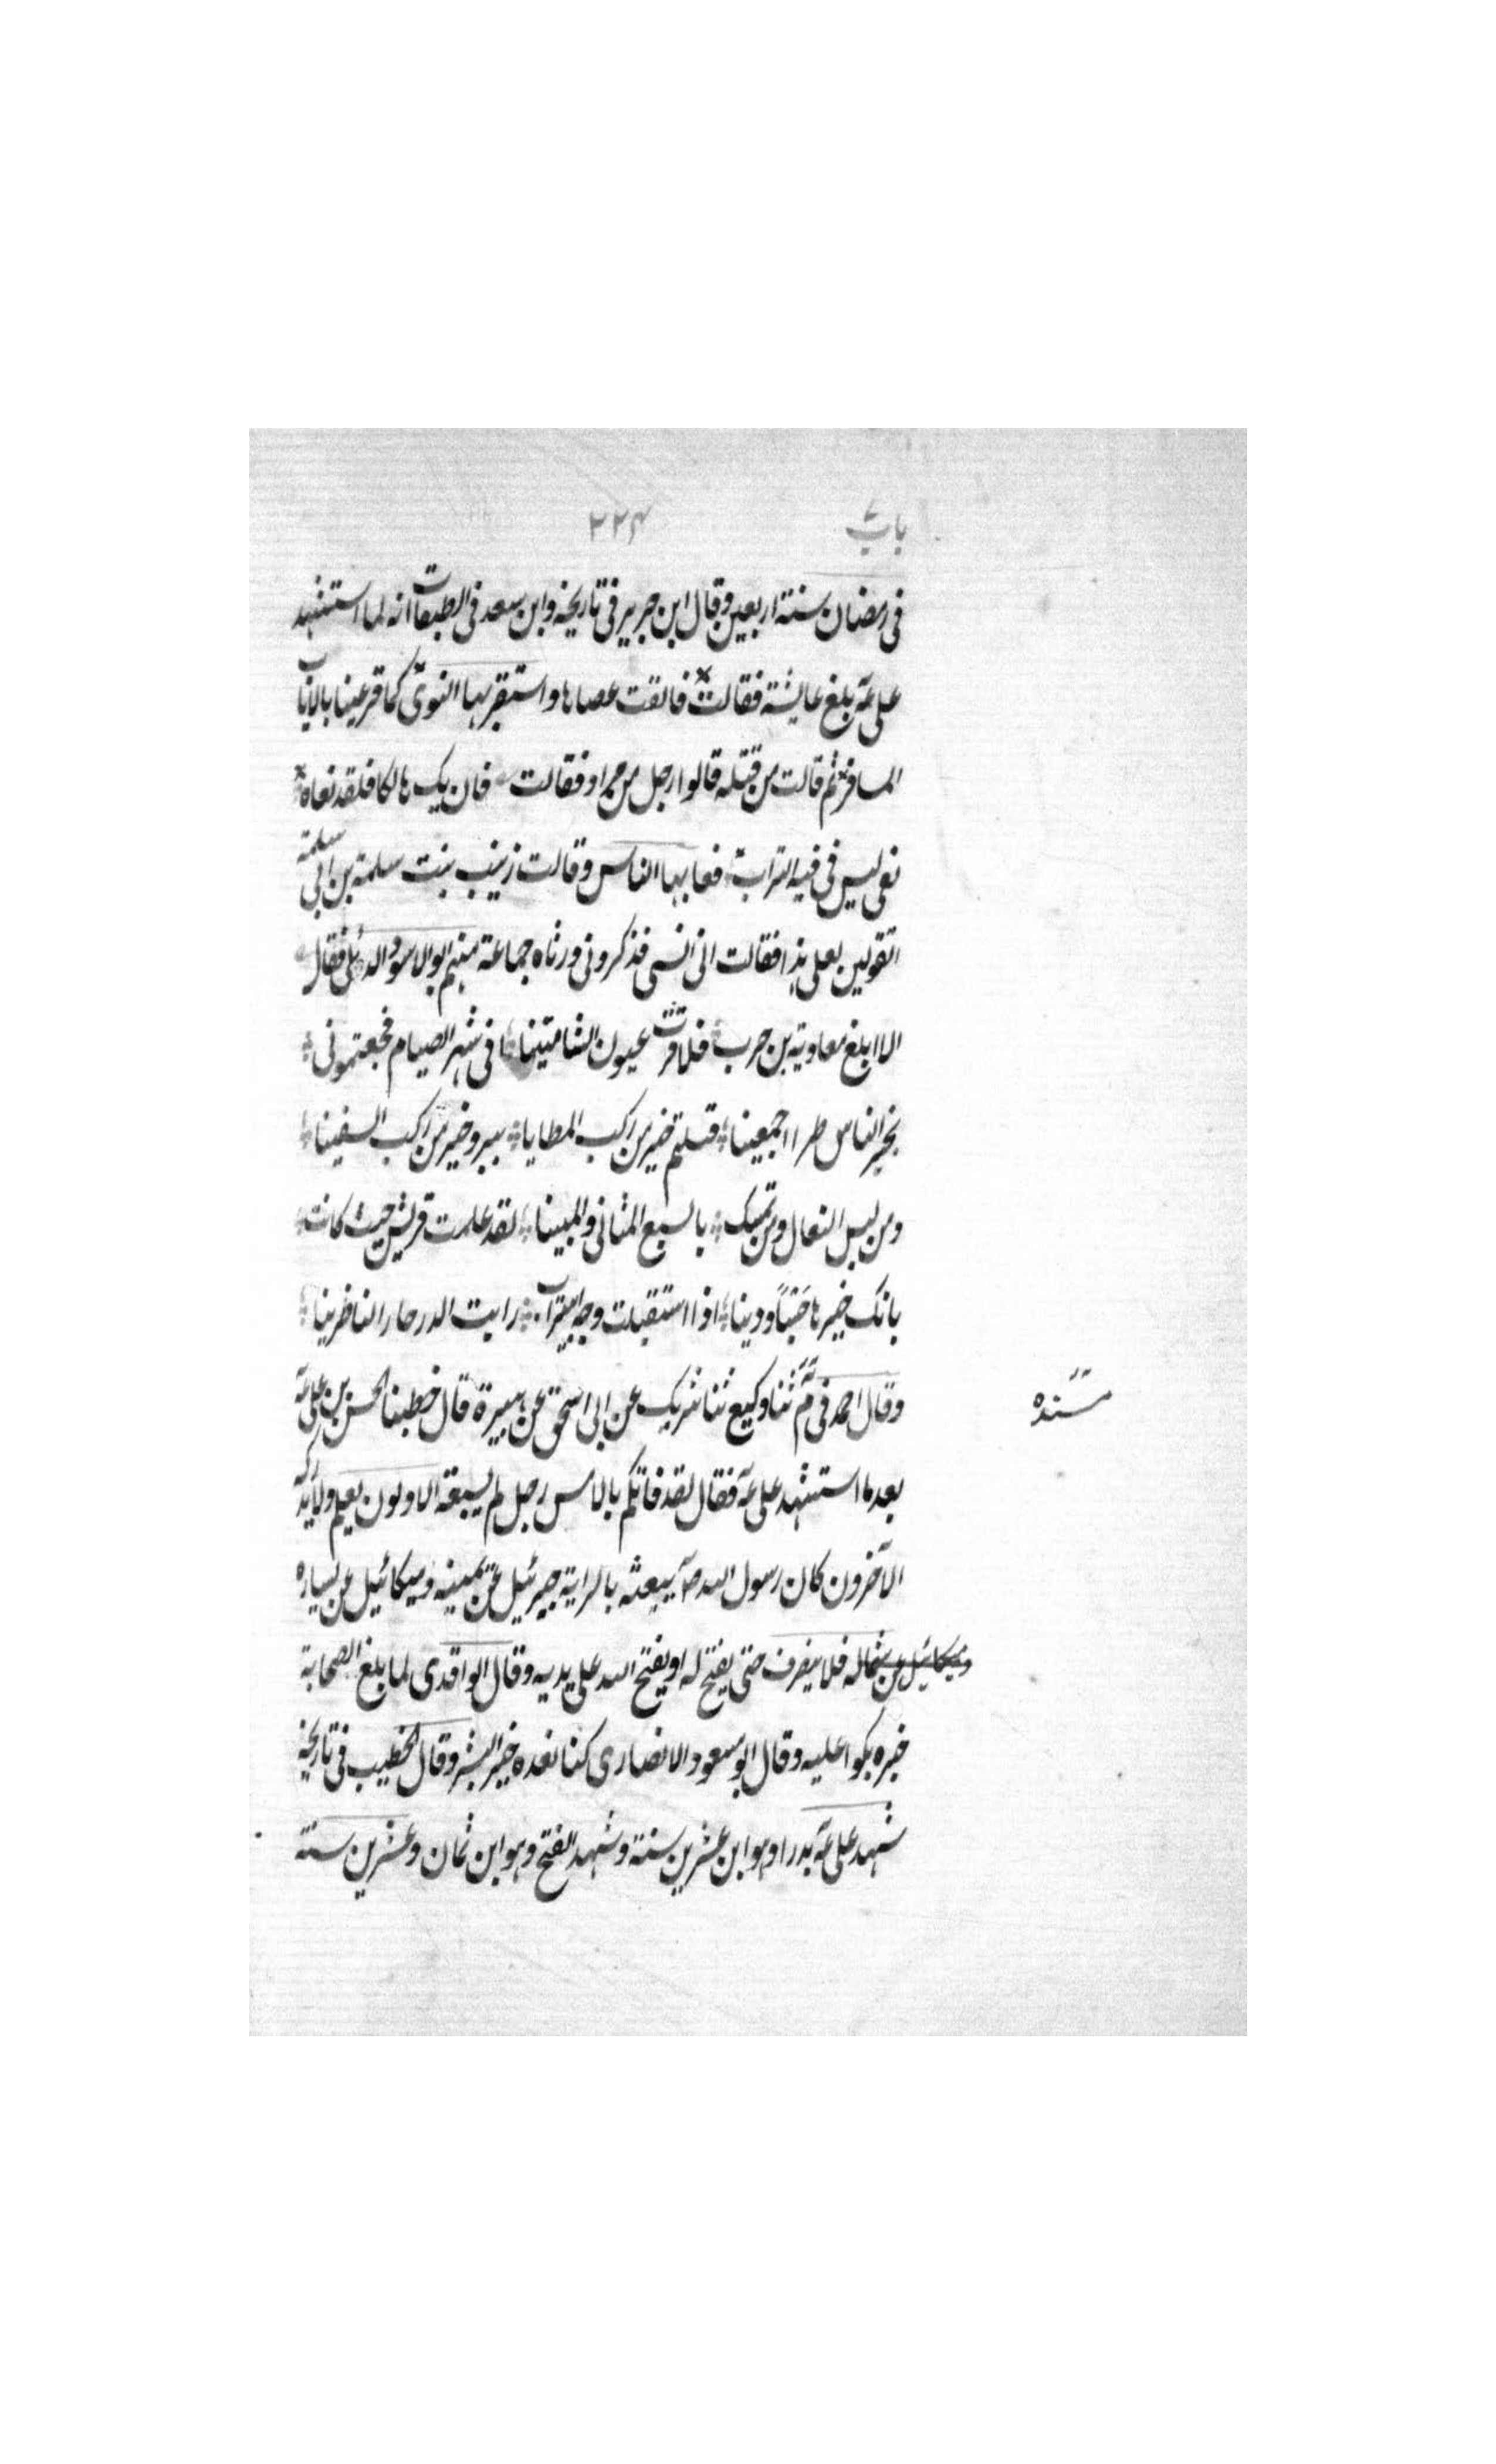 باب ٧ ٢٢٤
في رمضان سنة اربعين وقال ابن جرير في تاريخه وابن سعد في الطبقات انه لما استشهد
علي عہ بلغ عايشة فقالت فالقت عصاها واستقر بها النوى كما قر عينا بالاياب
المسافر ثم قالت من قتله قالوا رجل من مراد فقالت فان يك هالكا فلقد نعاه
نعي ليس في فيه التراب فعابها الناس وقالت زينب بنت سلمة بن ابي سلمة
اتقولين بعلي هذا فقالت اني انسى فذكروني ورثاه جماعة منهم ابو الاسود الدئلي فقال
الا ابلغ معاوية بن حرب فلا قرت عيون الشامتينا افي شهر الصيام فجعتموني
بخير الناس طرا اجمعينا قتلتم خير من ركب المطايا وخير من ركب السفينا
ومن لبس النعال ومن بالسبع المثاني والمبينا لقد علمت قريش حيث كانت
بانك خيرها حسَبًا ودينا اذا استقبلت وجه ابي تراب رايت البدر حار الناظرينا
وقال احمد في ثنا وكيع ثنا شريك عن ابي اسحق عن هبيرة قال خطبنا الحسن بن علي عہ
مسنده
بعد ما استشهد علي عہ فقال لقد فاتكم بالامس رجل لم يسبقه الاولون بعلم ولا يدركه
الآخرون كان رسول الله صہ يبعثه بالراية جبرئيل عن يمينه وميكائيل عن يساره
وميكائيل عن شماله فلا ينصرف حتى يفتح له او يفتح الله على يديه وقال الواقدي لما بلغ الصحابة
خبره بكوا عليه وقال ابو مسعود الانصاري كنا نعده خير البشر وقال الخطيب في تاريخه
شهد علي عہ بدرا وهو ابن عشرين سنة وشهد الفتح وهو ابن ثمان وعشرين سنة